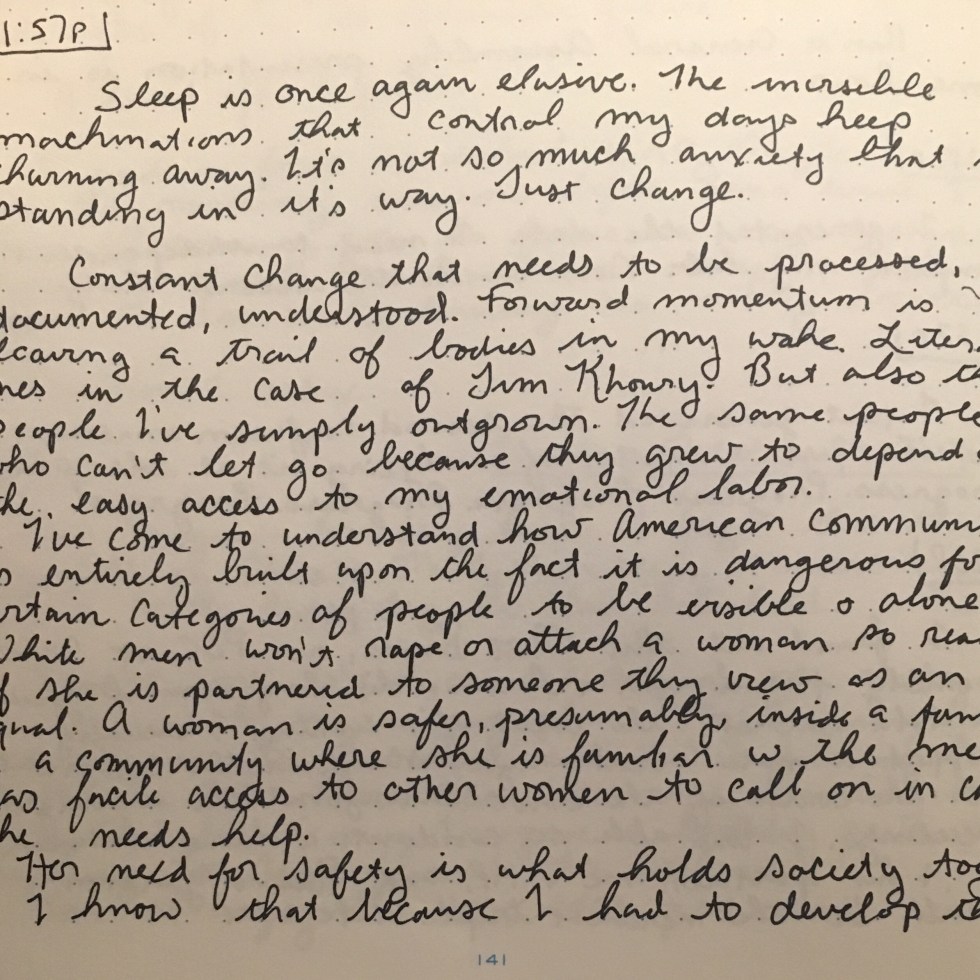 1:57P
Sleep is once again elusive. The invisible
machinations that control my days keep
churning away. It's not so much anxiety that
standing in it's way. Just change.
Constant change that needs to be processed,
documented, understood. Forward momentum is
leaving a trail of bodies in my wake. Liter
nes in the case of Jim Khoury. But also th
people I've simply outgrown. The same people
who can't let go because they grew to depend
the easy access to my emotional labor.
I've come to understand how American Commun
s entirely built upon the fact it is dangerous fo
rtain categories of people to be visible alone
White men won't rape or attack a woman so rea
f she is partnered to someone they view as an
qual. A woman is safer, presumably, inside a fam
a community where she is familiar w the me
as facile access to other women to call on in ca
he needs help.
Her need for safety is what holds society tog
I know that because I had to develop
141